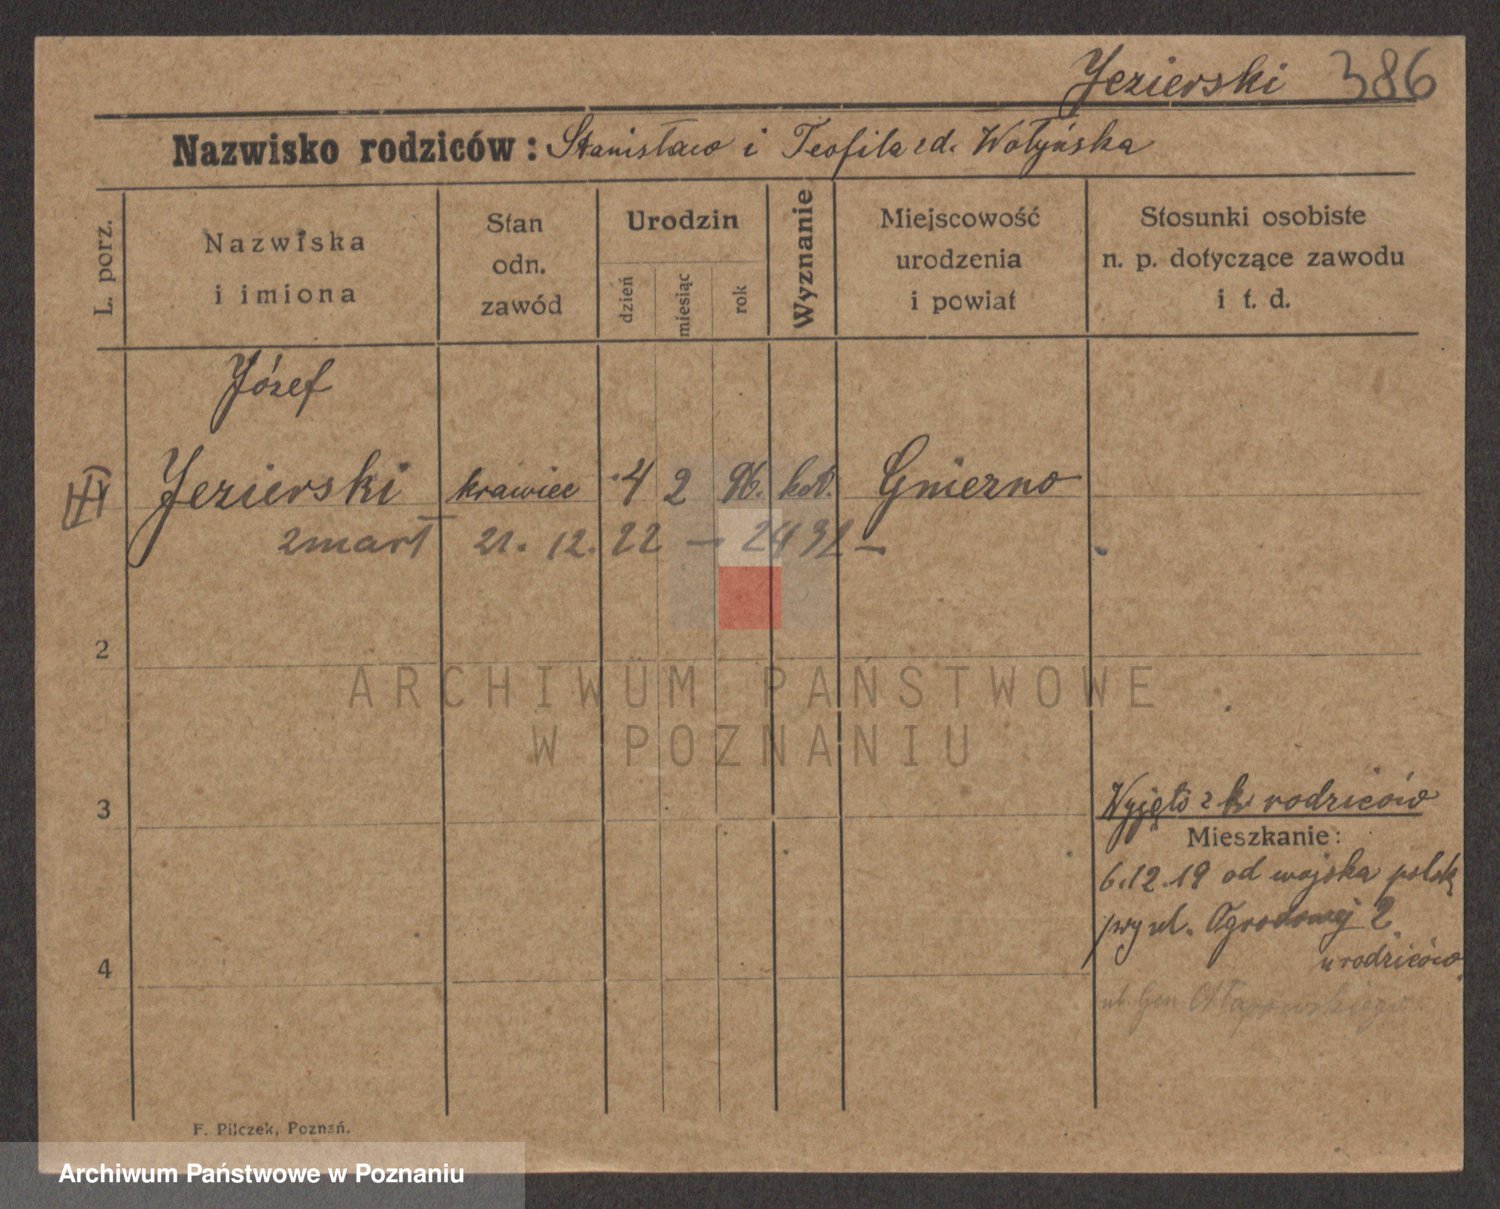 Jezierski 386
Nazwisko rodziców: Stanisław i Teofila zd. Wołyńska
L. porz.
Nazwiska
i imiona
Stan
odn.
zawód
Urodzin
dzień
miesiąc
rok
Wyznanie
Miejscowość
urodzenia
i powiat
Stosunki osobiste
n. p. dotyczące zawodu
i t. d.
Józef
Jezierski krawiec 4 2 96. kat. Gniezno
zmarł 21. 12. 22 — 2492 —
2
3
4
Wyjęto z k. rodziców
Mieszkanie:
6.12.19 od wojska polsk
przy ul. Ogrodowej 2
u rodziców
ul. Gen. Chłapowskiego
F. Pilczek, Poznań.
ARCHIWUM PAŃSTWOWE
W POZNANIU
Archiwum Państwowe w Poznaniu